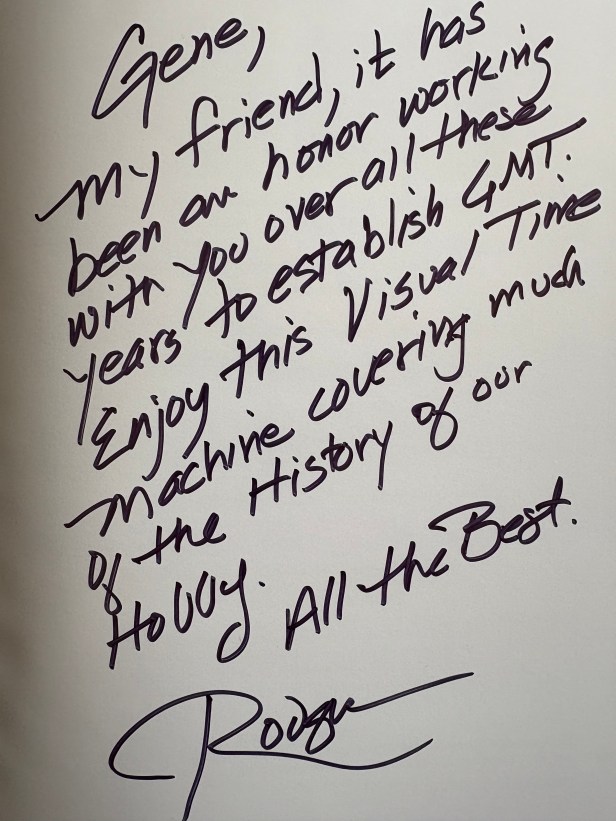 Gene,
My friend, it has
been an honor working
with you over all these
years to establish GMT.
Enjoy this Visual Time
Machine covering much
of the History of our
Hobby. All the Best.